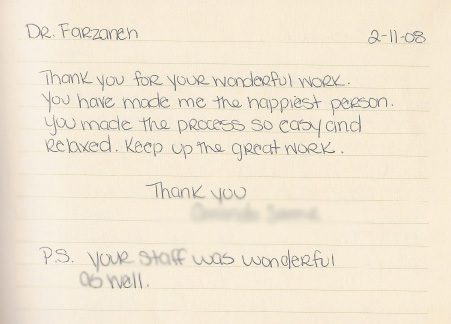 Dr. Farzaneh 2-11-08
Thank you for your wonderful work.
You have made me the happiest person.
You made the process so easy and
relaxed. Keep up the great work.
Thank you
P.S. your staff was wonderful
as well.